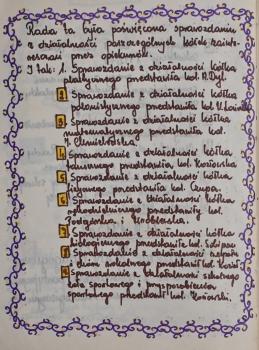 Rada ta była poświęcona sprawozdaniu
z działalności poszczególnych kółek zainte-
resowań przez opiekunów.
I tak: 1. Sprawozdanie z działalności kółka
plastycznego przedstawiła kol. R. Dyl.
2 Sprawozdanie z działalności kółka
polonistycznego przedstawiła kol.
3 Sprawozdanie z działalności kółka
matematycznego przedstawiła kol.
4 Sprawozdanie z działalności kółka
przedstawiła kol. Kozłowska
5 Sprawozdanie z działalności kółka
przedstawiła kol. Czupa.
6 Sprawozdanie z działalności kółka
przedstawiły kol.
i Wróblewska.
7 Sprawozdanie z działalności kółka
biologicznego przedstawiła kol.
8 Sprawozdanie z działalności
przedstawiła kol.
9 Sprawozdanie z działalności szkolnego
koła sportowego i przysposobienia
przedstawił kol. Kosowski.